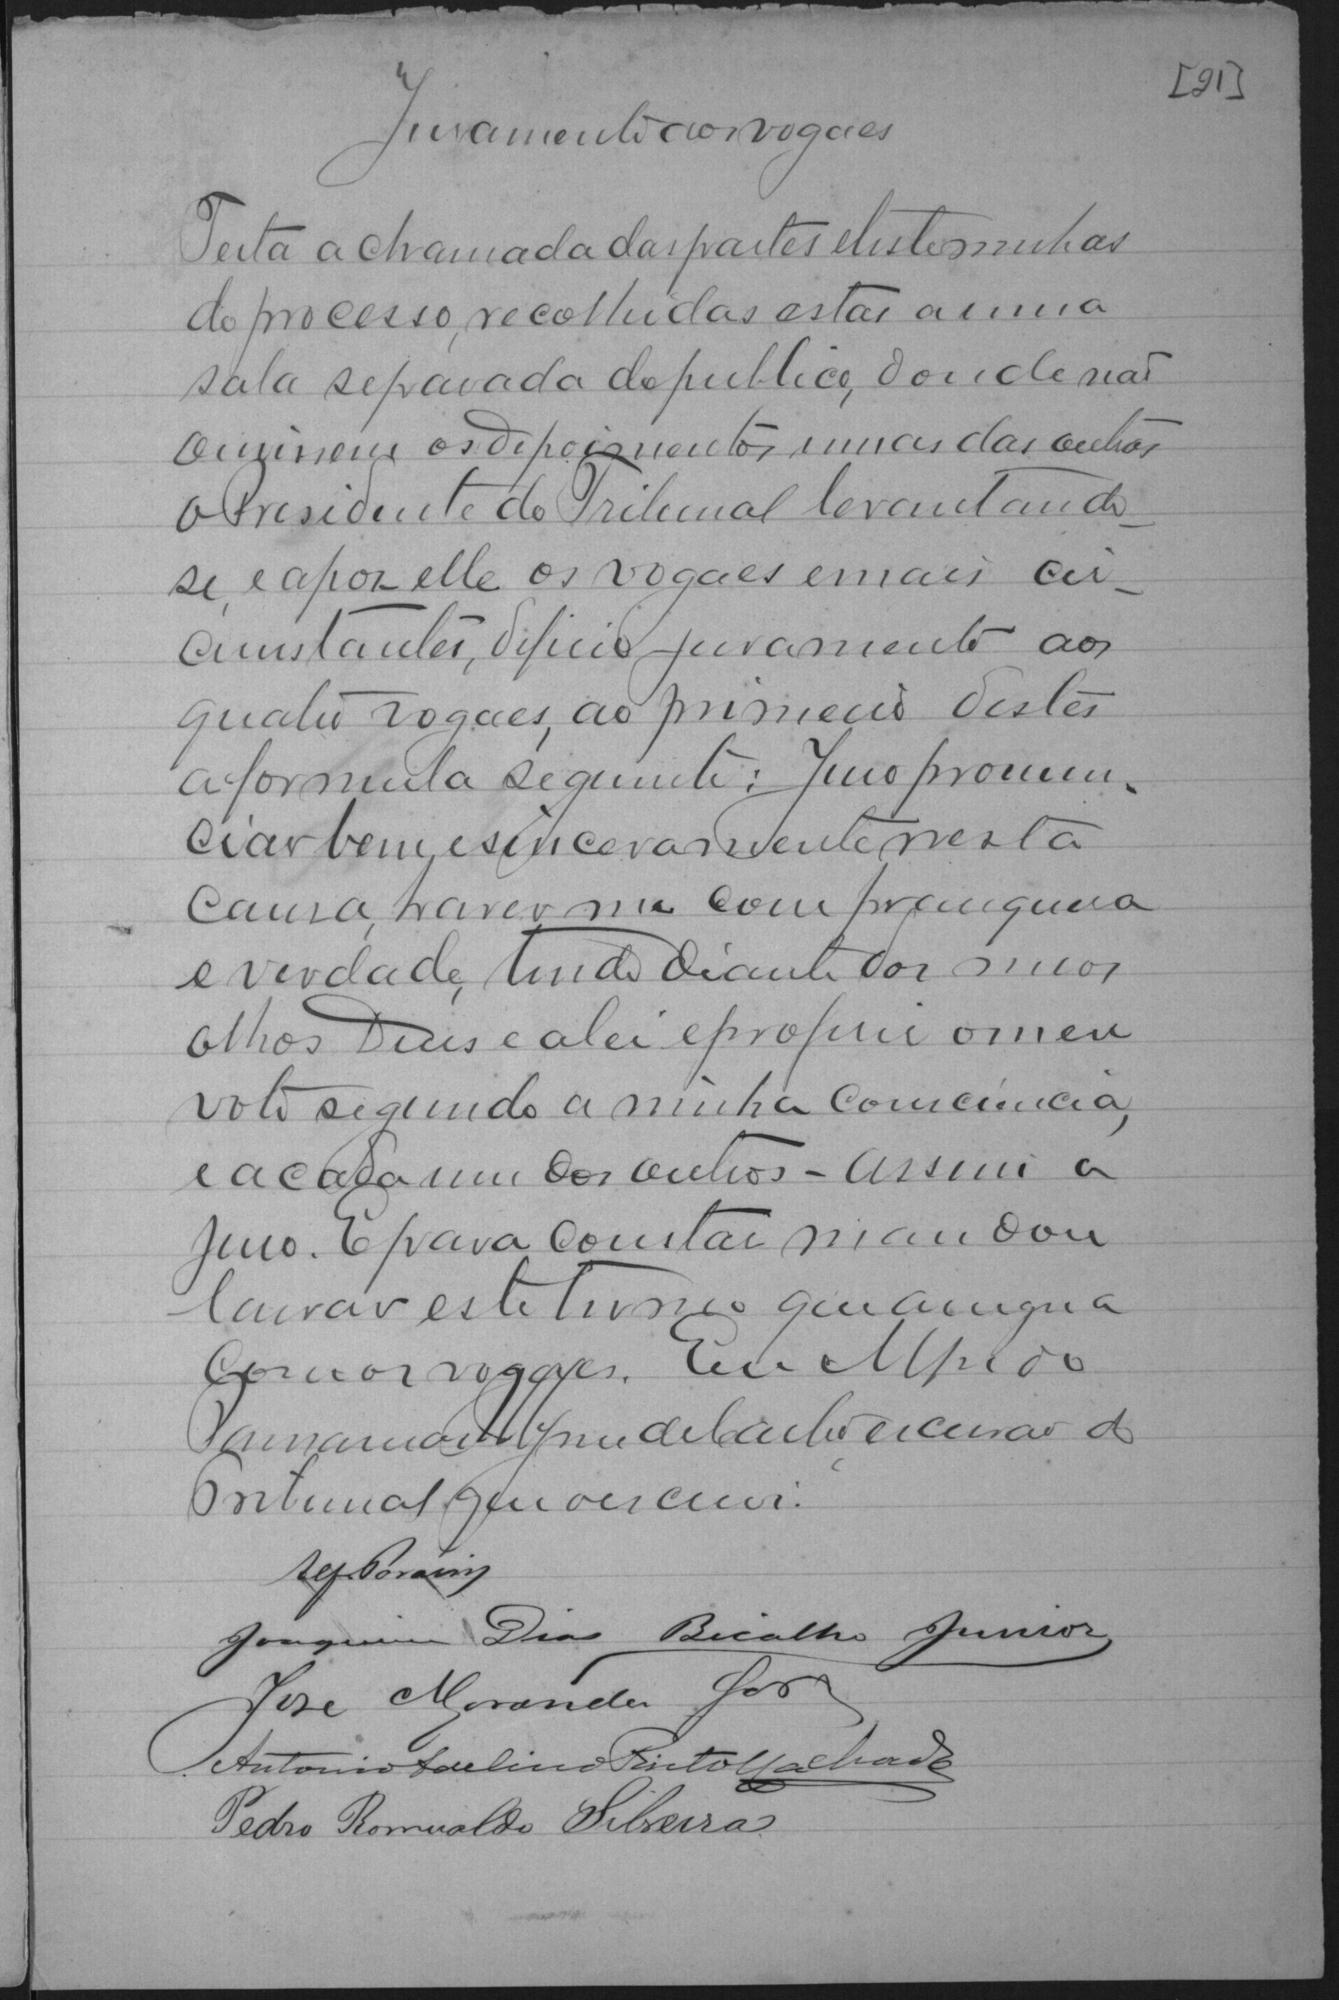 [21]
Juramento aos vogaes
Feita a chamada das partes e testeminhas
do processo, recolhidas estas a uma
sala separada do publico, donde não
ouvissem os depoimentos umas das outras
o Presidente do Tribunal levantando-
se, e apoz elle os vogaes e mais cir-
cunstantes, deferio juramento aos
quatro vogaes, ao primeiro destes
a formula seguinte: Juro pronun-
ciar bem e sinceramente nesta
causa, haver me com franqueza
e verdade, tendo diante dos meos
olhos Deus e a lei e proferir o meu
voto segundo a minha consciencia,
e a cada um dos outros - Assim o
juro. E para constar mandou
lavrar este termo que assigna
com os vogaes. Eu Alfredo
escrivão do
Tribunal que o escrevi.
Joaquim Dias Bicalho Junior
José Moranda
Antonio Avelino Pinto Machado
Pedro Romualdo Silveira